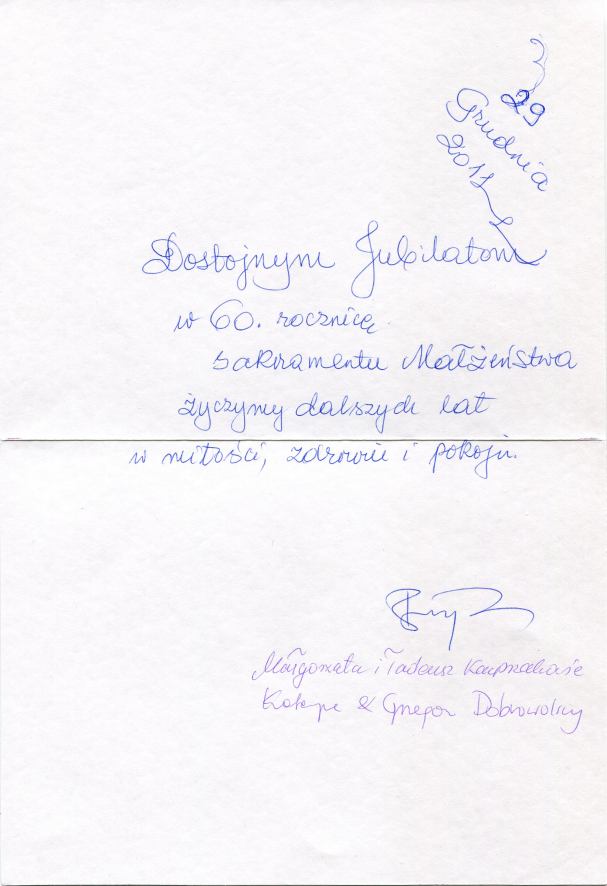 29
Grudnia
2011
Dostojnym Jubilatom
w 60. rocznicę
sakramentu Małżeństwa
życzymy dalszych lat
w miłości, zdrowiu i pokoju.
Małgorzata i Tadeusz
& Grzegorz Dobrowolscy